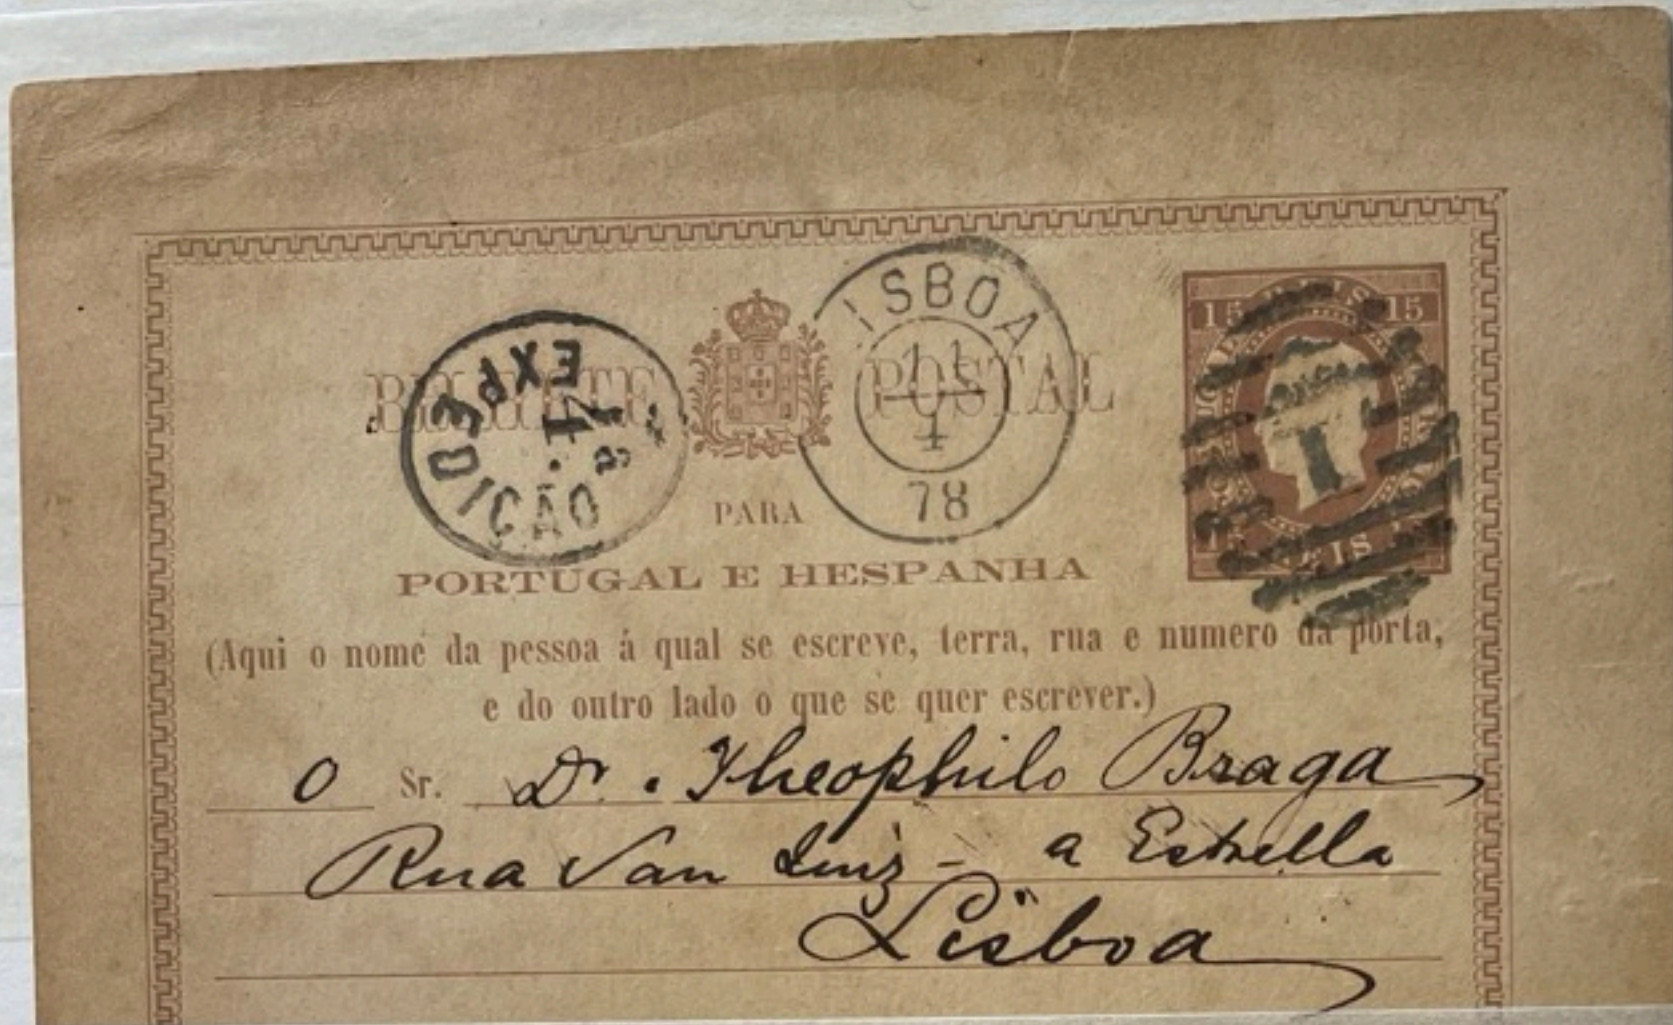 BILHETE POSTAL
EXPEDIÇÃO
4.
1ª
LISBOA
11
4
78
15 REIS 15
PARA
PORTUGAL E HESPANHA
(Aqui o nome da pessoa á qual se escreve, terra, rua e numero da porta,
e do outro lado o que se quer escrever.)
O Sr. Dr. Theophilo Braga
Rua San Luiz - a Estrella
Lisboa